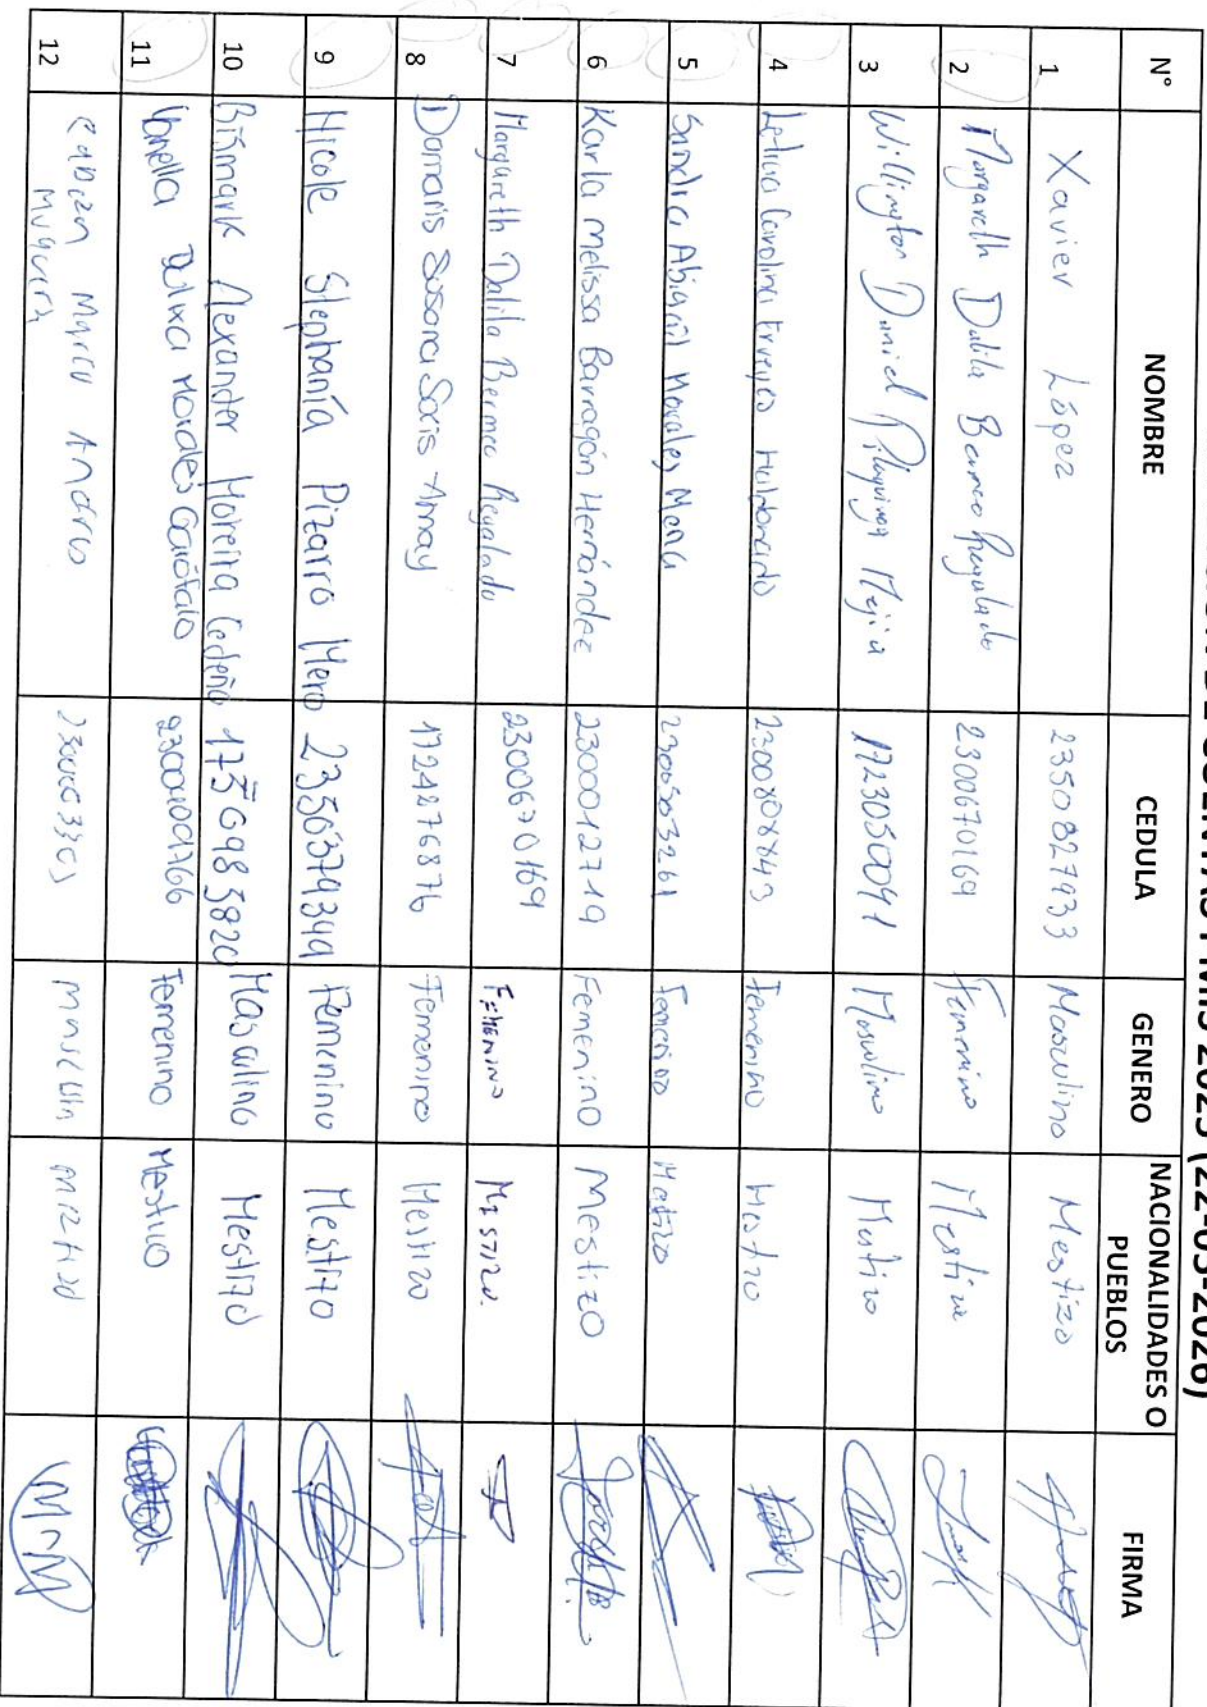 2025 (22-05-2026)
N° NOMBRE CEDULA GENERO NACIONALIDADES O PUEBLOS FIRMA
1 Xavier López 2350827933 Masculino Mestizo
2 Margareth Dalila Bermeo Regalado 2300670169 Femenino Mestizo
3 Willington Daniel Mejía 1723050091 Masculino Mestizo
4 Leticia Carolina 2300808843 Femenino Mestizo
5 Sandra Abigail Morales Mena 2300503261 Femenino Mestizo
6 Karla Melissa Barragán Hernández 2300012719 Femenino Mestizo
7 Margareth Dalila Bermeo Regalado 2300670169 Femenino Mestizo.
8 Damaris Susana Solis Amay 1724876876 Femenino Mestizo
9 Nicole Stephanía Pizarro Mero 2350379349 Femenino Mestizo
10 Bismark Alexander Moreira Cedeño Masculino Mestizo
11 Morales Garófalo Femenino Mestizo
12 Marco Andres